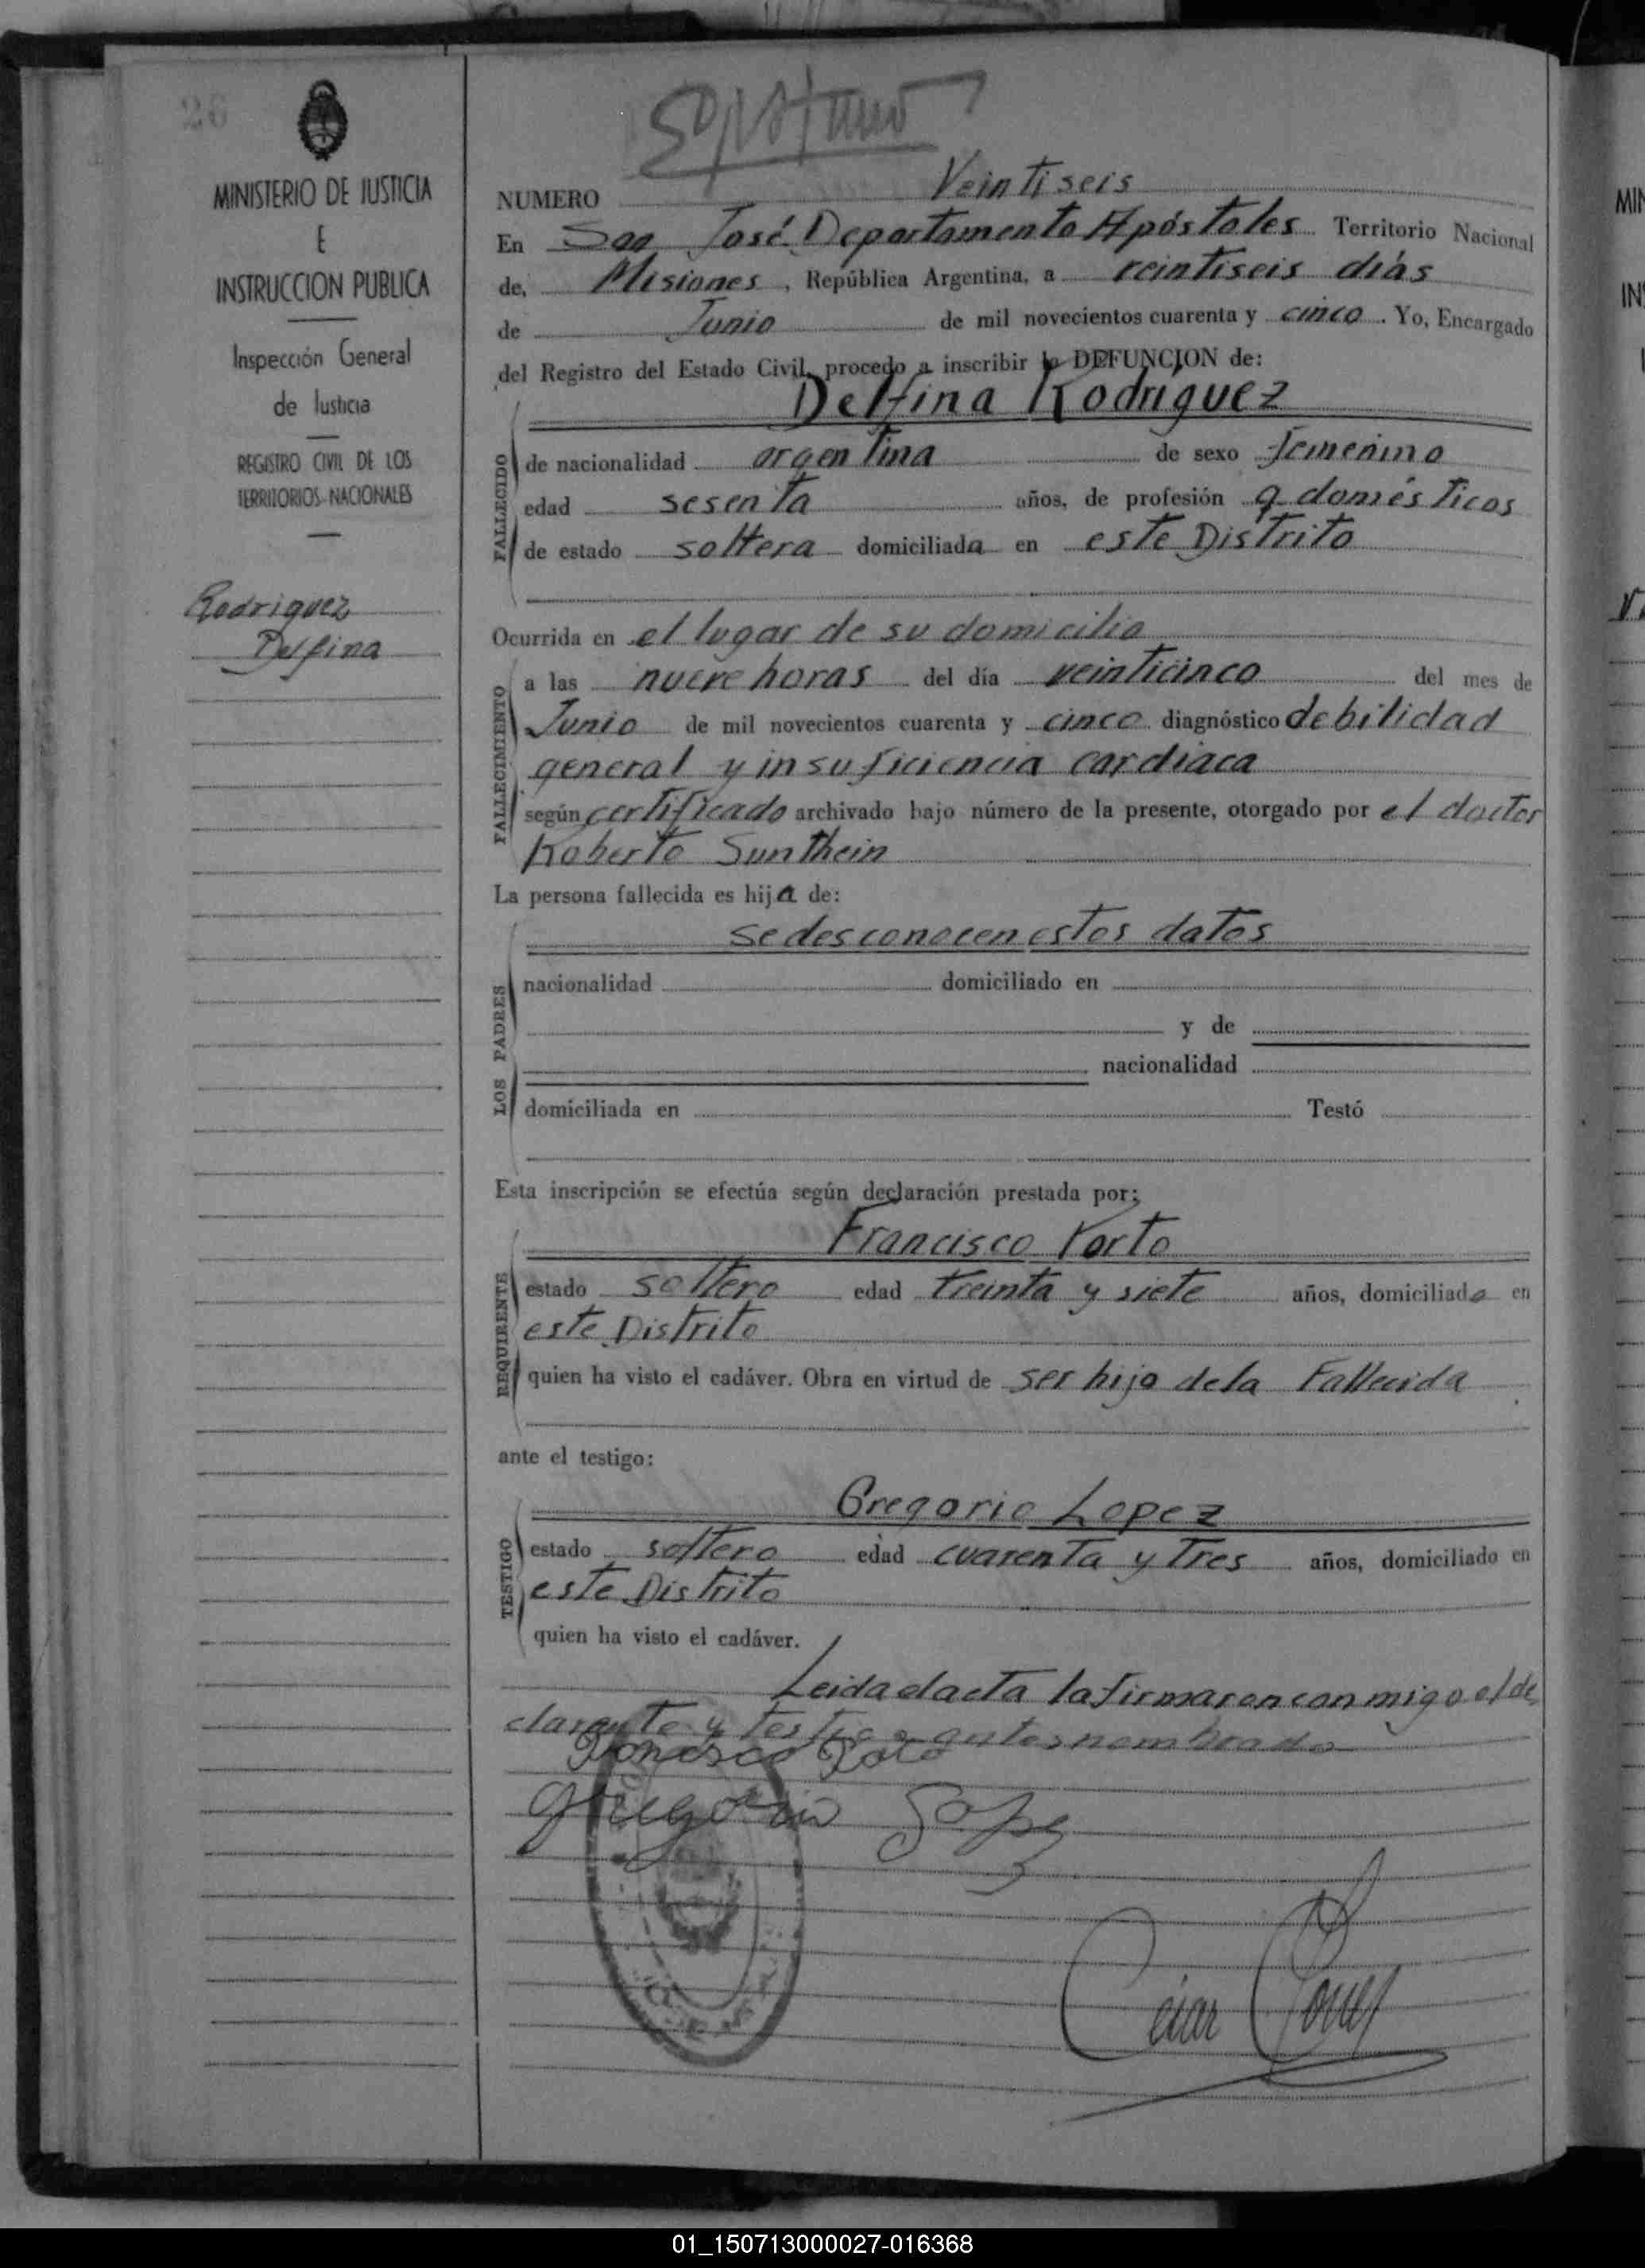 26
MINISTERIO DE JUSTICIA
E
INSTRUCCION PUBLICA
Inspección General
de Justicia
REGISTRO CIVIL DE LOS
TERRITORIOS NACIONALES
Rodriguez
Delfina
NUMERO Veintiseis
En San José Departamento Apóstoles Territorio Nacional
de, Misiones, República Argentina, a veintiseis diás
de Junio de mil novecientos cuarenta y cinco. Yo, Encargado
del Registro del Estado Civil, procedo a inscribir la DEFUNCION de:
Delfina Rodriguez
FALLECIDO
de nacionalidad argentina de sexo femenino
edad sesenta años, de profesión q domésticos
de estado soltera domiciliada en este Distrito
Ocurrida en el lugar de su domicilio
FALLECIMIENTO
a las nueve horas del día veinticinco del mes de
Junio de mil novecientos cuarenta y cinco diagnóstico debilidad
general y insuficiencia cardiaca
según certificado archivado bajo número de la presente, otorgado por el doctor
Roberto Sunthein
La persona fallecida es hija de:
LOS PADRES
se desconocen estos datos
nacionalidad domiciliado en
y de
nacionalidad
domiciliada en Testó
Esta inscripción se efectúa según declaración prestada por:
Francisco Porto
REQUIRENTE
estado soltero edad treinta y siete años, domiciliado en
este Distrito
quien ha visto el cadáver. Obra en virtud de ser hijo de la Fallecida
ante el testigo:
Gregorio Lopez
TESTIGO
estado soltero edad cuarenta y tres años, domiciliado en
este Distrito
quien ha visto el cadáver.
Leida el acta la firmaron con migo el de
clarante y testigo antes nombrado
Gregorio Lopez
Cesar
01_150713000027-016368